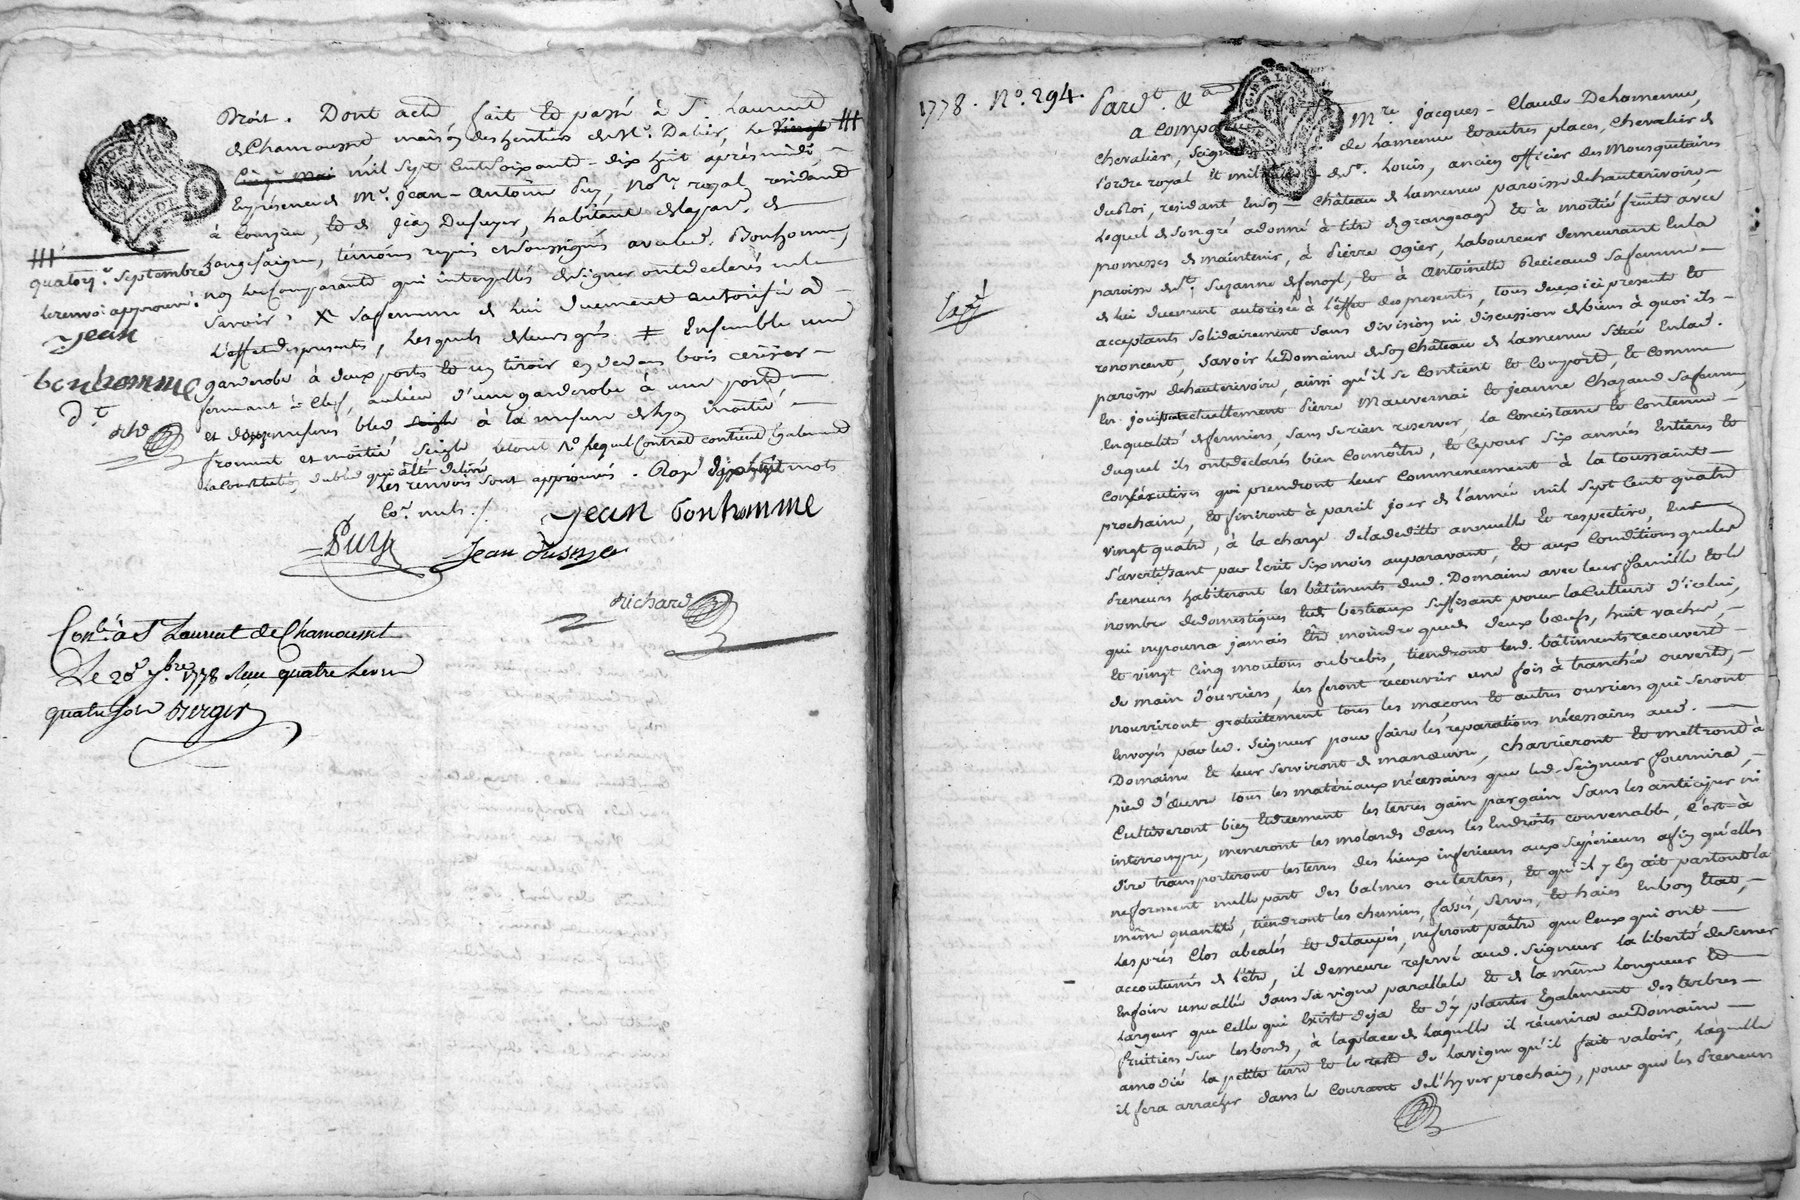 Droit. Dont acte, fait et passé à St. Laurent
de Chamousset maison des hentiers de Mr. Dalier, le vingt
cinq mai mil sept cent soixante-dix huit après midi,
En présence de Mr. Jean-Antoine Puy, Nore. royal, résidant
à Courzieu, et de Jean Dufuyer, habitant de la par. de
Longesaigne, témoins requis et soussignés avec led. Bonhomme,
non les comparants qui interpellés de signer ont déclarés ne le
savoir. X sa femme de lui duement autorisée à
l'effet des presentes, lesquels de leurs grés. # Ensemble une
garderobe à deux portes et un tiroir en dedans bois cerisier
fermant à clef, au lieu d'une garderobe à une porte
et douze mesures bled seigle à la mesure de Lyon moitié
froment et moitié seigle
les renvois sont approuvés. Rayé dix huit mots
comme nuls ./.
Jean bonhomme
Puy
Jean Dufuyer
Richard
quatorze. septembre
le renvoi approuvé.
jean
bonhomme
Dt
Rhd
Conlé. à St Laurent de Chamousset
Le 20e 7bre. 1778 Reçu quatre livres
quatre sols Berger
1778. No. 294.
Pardt. &a
a comparu Mre Jacques-Claude Delamenue,
chevalier, seigneur de Lamenue et autres places, chevalier de
l'ordre royal et militaire de St. Louis, ancien officier des Mousquetaires
du Roi, résidant en son Château de Lamenue paroisse de hauterivoire,
Lequel de son gré a donné à titre de grangeage et à moitié fruits avec
promesses de maintenir, à Pierre Ogier, Laboureur demeurant en la
paroisse de Ste. Suzanne de fenoyl, et à Antoinette Recicaud sa femme
de lui duement autorisée à l'effet des presentes, tous deux ici present et
acceptants solidairement sans division ni discussion de biens à quoi ils
renoncent, savoir le Domaine de son Château de Lamenue situé en lad.
paroisse de hauterivoire, ainsi qu'il se contient et comporte, et comme
en jouissent actuellement Pierre Mauvernai et Jeanne Chazaud sa femme,
en qualité de fermiers, sans se rien reserver, la consistance et contenue
duquel ils ont déclarés bien connoître, et ce pour six années entières et
consécutives qui prendront leur commencement à la toussaint
prochaine, et finiront à pareil jour de l'année mil sept cent quatre
vingt quatre, à la charge de la deditte annuelle et respective, en
s'avertissant par écrit six mois auparavant, et aux conditions que les
Preneurs habiteront les bâtiments dud. Domaine avec leur famille et le
nombre de domestiques et de bestiaux suffisant pour la culture d'icelui,
qui ne pourra jamais être moindre que de deux bœufs, huit vaches,
et vingt cinq moutons ou brebis, tiendront lesd. bâtiments recouverts
de main d'ouvriers, les feront recouvrir une fois à tranchée ouverte,
nourriront gratuitement tous les maçons et autres ouvriers qui seront
envoyés par led. seigneur pour faire les réparations nécessaires aud.
Domaine et leur serviront de manœuvre, charrieront et mettront à
pied d'œuvre tous les matériaux nécessaires que led. seigneur fournira,
cultiveront bien et duement les terres gain par gain sans les anticiper ni
interrompre, meneront les molards dans les endroits convenable, c'est-à
dire transporteront les terres des lieux inferieurs aux supérieurs afin qu'elles
ne forment nulle part des balmes ou tertres, et qu'il y en ait partout la
même quantité, tiendront les chemins, fossés, serves, et haies en bon état,
les prés clos abealés et detaupés, ne feront paître que ceux qui ont
accoutumés de l'être, il demeure reservé aud. seigneur la liberté de semer
en foin une allée dans sa vigne parallele et de la même longueur et
largeur que celle qui existe deja et d'y planter également des arbres
fruitiers sur les bords, à la place de laquelle il réunira au Domaine
amodié la petite terre et le reste de la vigne qu'il fait valoir, laquelle
il fera arracher dans le courant de l'hyver prochain, pour que les Preneurs